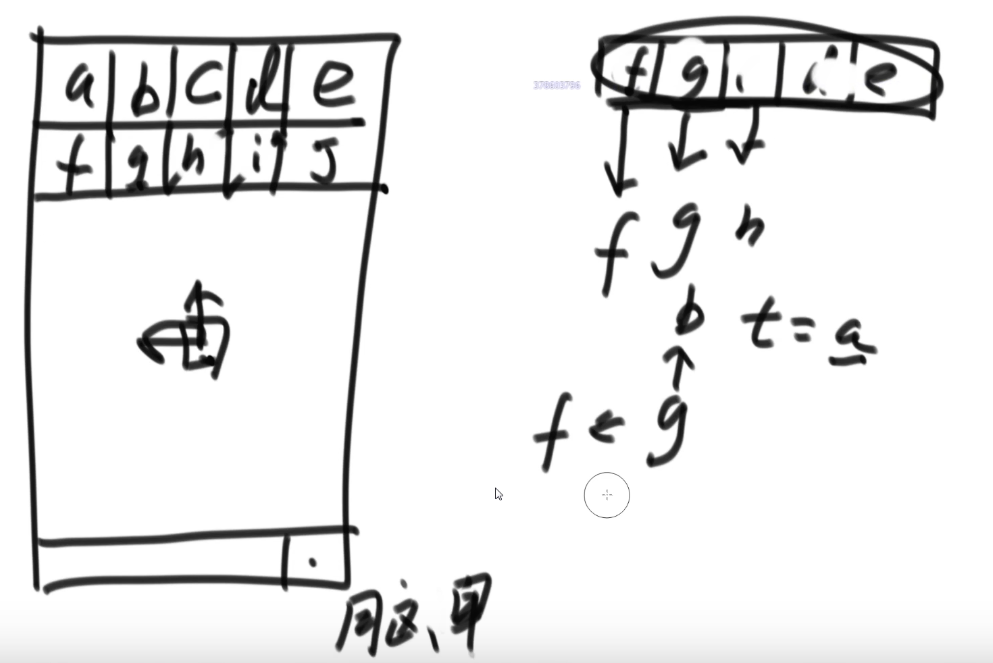 a b c d e
f g h i j
370603706
f g i i e
f g h
b t = a
f ← g